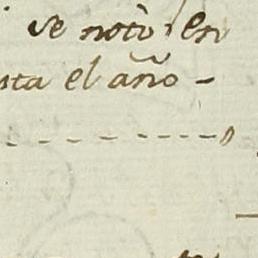 se notò en
sta el año -